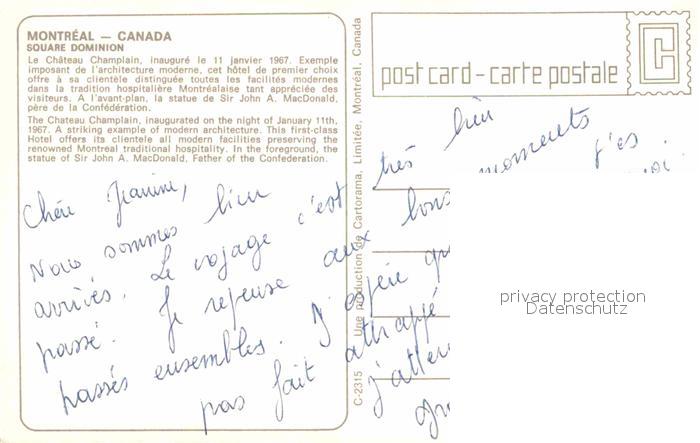 MONTRÉAL — CANADA
SQUARE DOMINION
Le Château Champlain, inauguré le 11 janvier 1967. Exemple
imposant de l'architecture moderne, cet hôtel de premier choix
offre à sa clientèle distinguée toutes les facilités modernes
dans la tradition hospitalière Montréalaise tant appréciée des
visiteurs. A l'avant-plan, la statue de Sir John A. MacDonald,
père de la Confédération.
The Chateau Champlain, inaugurated on the night of January 11th,
1967. A striking example of modern architecture. This first-class
Hotel offers its clientele all modern facilities preserving the
renowned Montreal traditional hospitality. In the foreground, the
statue of Sir John A. MacDonald, Father of the Confederation.
C-2315 Une production de Cartorama, Limitée, Montréal, Canada
post card - carte postale
C
Chère Jeanine,
Nous sommes bien
arrivés. Le voyage c'est très bien
passé. Je repense aux bons moments
passés ensembles. J'espère j'es
pas fait attrappé moi
j'atten
privacy protection
Datenschutz